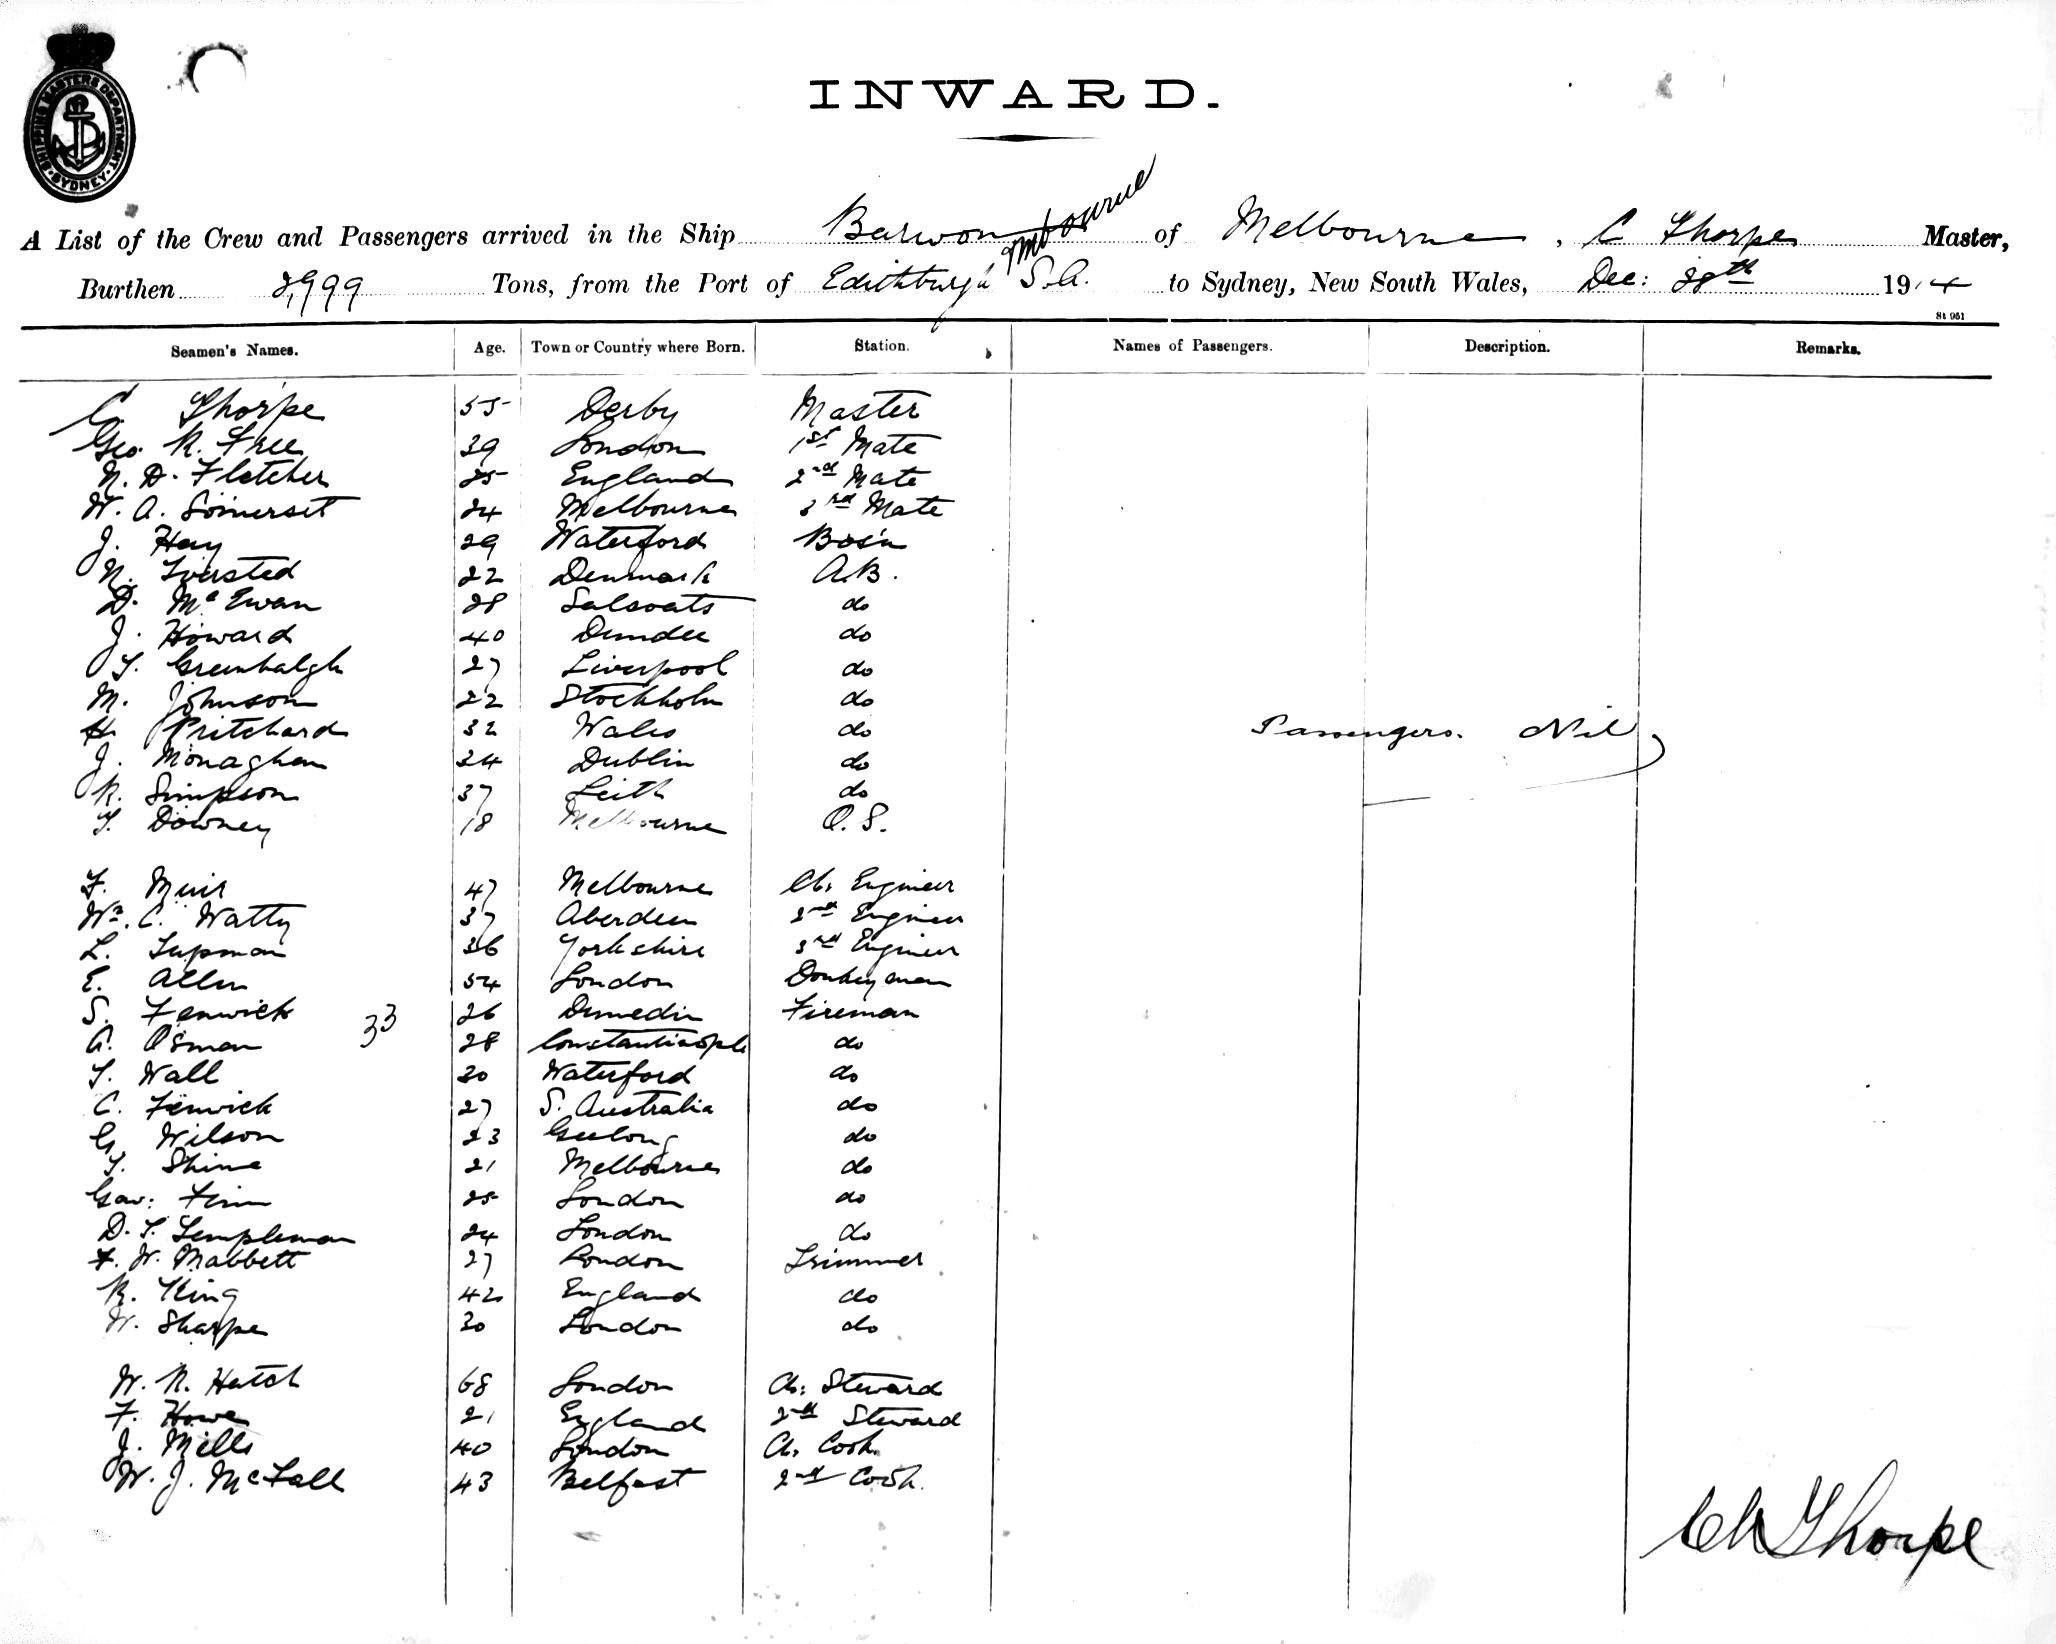 SHIPPING MASTERS DEPARTMENT
SYDNEY
INWARD.
A List of the Crew and Passengers arrived in the Ship Barwon of Melbourne, C Thorpe Master,
Melbourne
Burthen 2,999 Tons, from the Port of Edithburgh S.A. to Sydney, New South Wales, Dec: 28th 1914
St 951
Seamen's Names. Age. Town or Country where Born. Station. Names of Passengers. Description. Remarks.
C Thorpe 55 Derby Master
Geo. R. Free 39 London 1st Mate
N. D. Fletcher 25 England 2nd Mate
W. A. Somerset 24 Melbourne 3rd Mate
J. Hay 29 Waterford Bos'n
N. Iversted 22 Denmark A.B.
D. McEwan 28 Salsoats do
J. Howard 40 Dundee do
T. Greenhalgh 27 Liverpool do
M. Johnson 22 Stockholm do
H Pritchard 32 Wales do Passengers. Nil
J. Monaghan 34 Dublin do
R. Simpson 37 Leith do
T. Downey 18 Melbourne O.S.
F. Muir 47 Melbourne Ch. Engineer
Wm. C. Watty 37 Aberdeen 2nd Engineer
L. Tupman 36 Yorkshire 3rd Engineer
E. Allen 54 London Donkeyman
S. Fenwick 26 Dunedin Fireman
33
A. Osman 28 Constantinople do
T. Wall 30 Waterford do
C. Fenwick 27 S. Australia do
G Wilson 23 Geelong do
T. Shine 21 Melbourne do
Gav: Finn 25 London do
D. T. Templeman 24 London do
F. W. Mabbett 27 London Trimmer
R. King 42 England do
W. Sharpe 30 London do
W. R. Hatch 68 London Ch: Steward
F. Howe 21 England 2nd Steward
J. Mills 40 London Ch. Cook
W. J. McFall 43 Belfast 2nd Cook.
Ch Thorpe